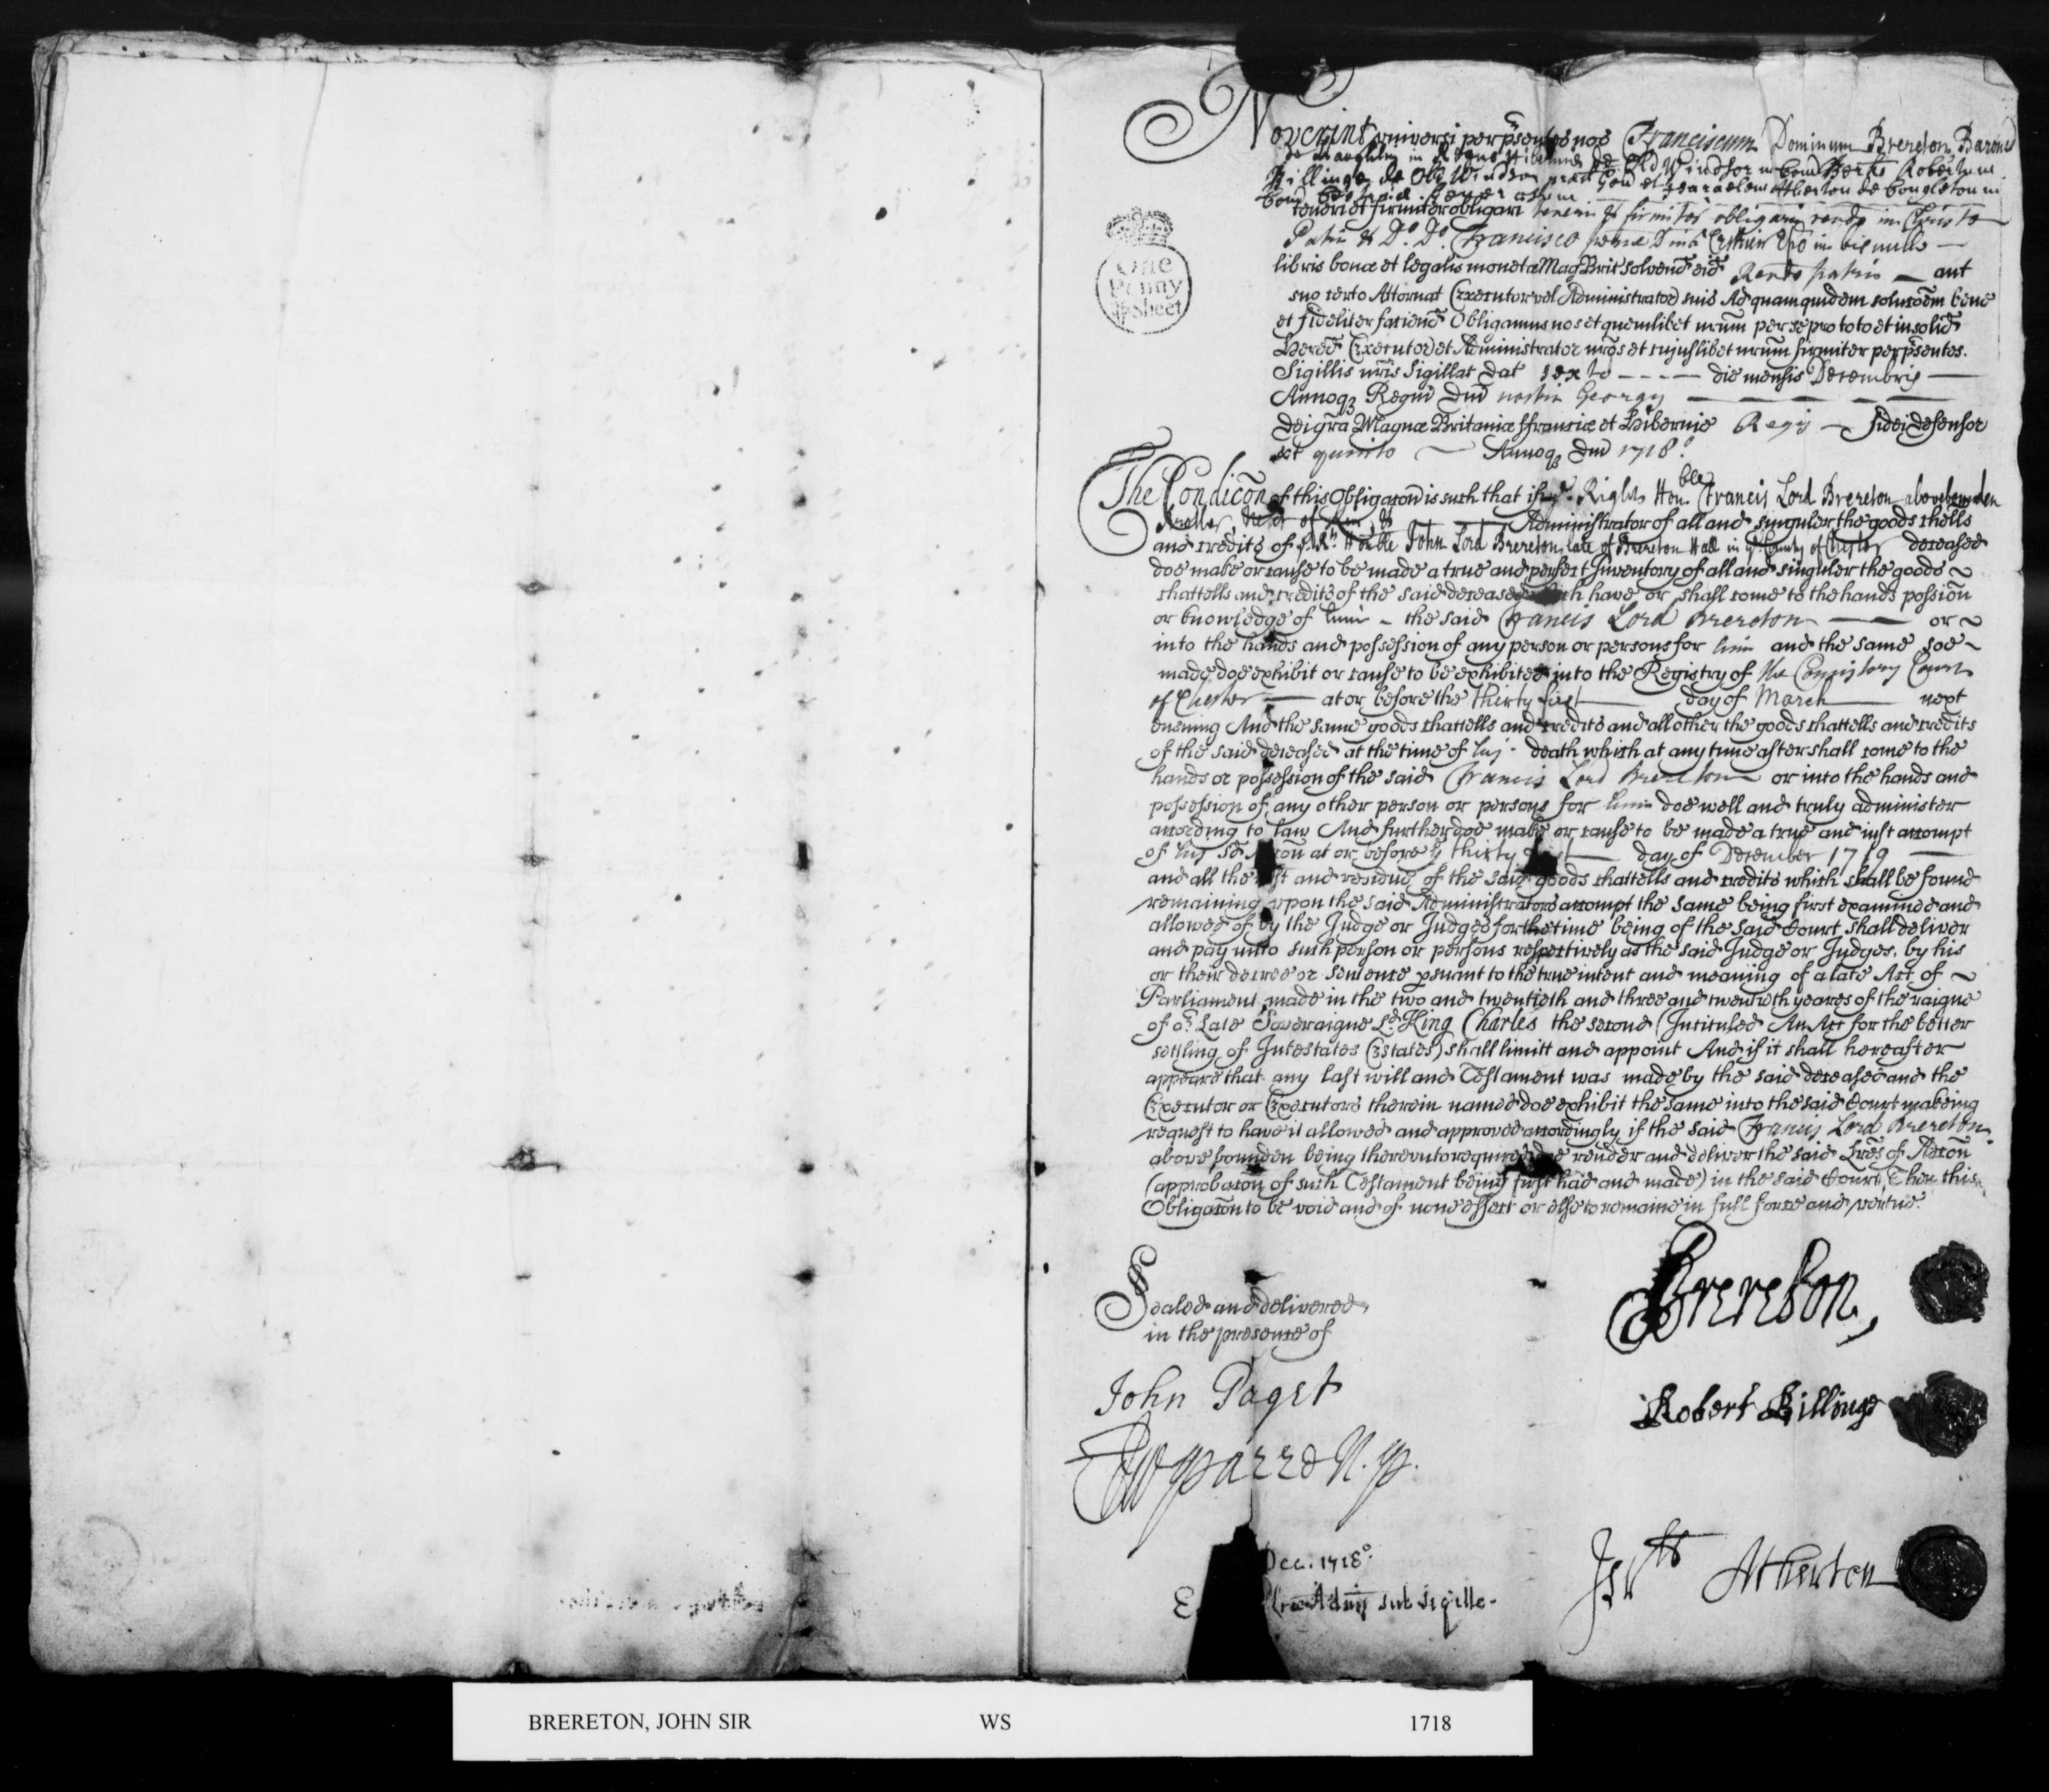 One
Penny
Sheet
Noverint universi per p'sentes nos Franciscum Dominum Brereton Baronem
in Regno Hiberniae de Old Windsor in Com Berks Robertum
Billinge de Old Windsor pred Gen et Israelem Atherton de Congleton in
Com
teneri et firmiter obligari teneri et firmiter obligari rendo in Christo
Patri & Do. Do. Francisco Epo in bis mille —
libris bonæ et legalis monetæ Mag Brit solvend eid Rendo patri — aut
suo certo Attornat Executor vel Administrator suis Ad quam quidem soluc̃oem bene
et fideliter faciend Obligamus nos et quemlibet nrum per se pro toto et in solid
Hered Executor et Administrator nros et cujuslibet nrum firmiter per p'sentes.
Sigillis nris Sigillat Dat sexto - - - - die mensis Decembris —
Annoq; Regni Dni nostri Georgy — — —
Dei gra Magnæ Britaniæ ffranciæ et Hibernie Regis — fidei defensor
et quinto — Annoq; Dni 1718°.
The Condic̃on of this Obligac̃on is such that if ye. Right Honble. Francis Lord Brereton abovebounden
Brother, & Administrator of all and singuler the goods chells
and credits of ye Rt. Honble John Lord Brereton late of Brereton Hall in ye County of Chester deceased
doe make or cause to be made a true and perfect Inventory of all and singuler the goods ~
chattells and credits of the said deceased which have or shall come to the hands possion
or knowledge of him - the said Francis Lord Brereton — — or ~
into the hands and possession of any person or persons for him and the same soe ~
made doe exhibit or cause to be exhibited into the Registry of the Consistory Court
of Chester — at or before the thirty first — day of March — next
ensuing And the same goods chattells and credits and all other the goods chattells and credits
of the said deceased at the time of his - death which at any time after shall come to the
hands or possession of the said Francis Lord Brereton or into the hands and
possession of any other person or persons for him doe well and truly administer
according to law And further doe make or cause to be made a true and iust accompt
of his sd at or before ye thirty first — day of December 1719 —
and all the rest and residue of the said goods chattells and credits which shall be found
remaining upon the said Administrators accompt the same being first examined and
allowed of by the Judge or Judges for the time being of the said Court shall deliver
and pay unto such person or persons respectively as the said Judge or Judges, by his
or their decree or sentence psuant to the true intent and meaning of a late Act of ~
Parliament made in the two and twentieth and three and twentieth yeares of the raigne
of or. Late Soveraigne Ld. King Charles the second (Intituled An Act for the better
settling of Intestates Estates) shall limitt and appoint And if it shall hereafter
appeare that any last will and Testament was made by the said deceased and the
Executor or Executors therein named doe exhibit the same into the said Court makeing
request to have it allowed and approved accordingly if the said Francis Lord Brereton
above bounden being thereunto required doe render and deliver the said Lres of Adcõn
(approbac̃on of such Testament being first had and made) in the said Court, Then this
Obligac̃on to be void and of none effect or else to remaine in full force and vertue.
Sealed and delivered
in the presence of
Brereton
John Paget
Robert Billinge
N. P.
Dec. 1718°.
sub sigillo -
Isrll Atherton
BRERETON, JOHN SIR WS 1718